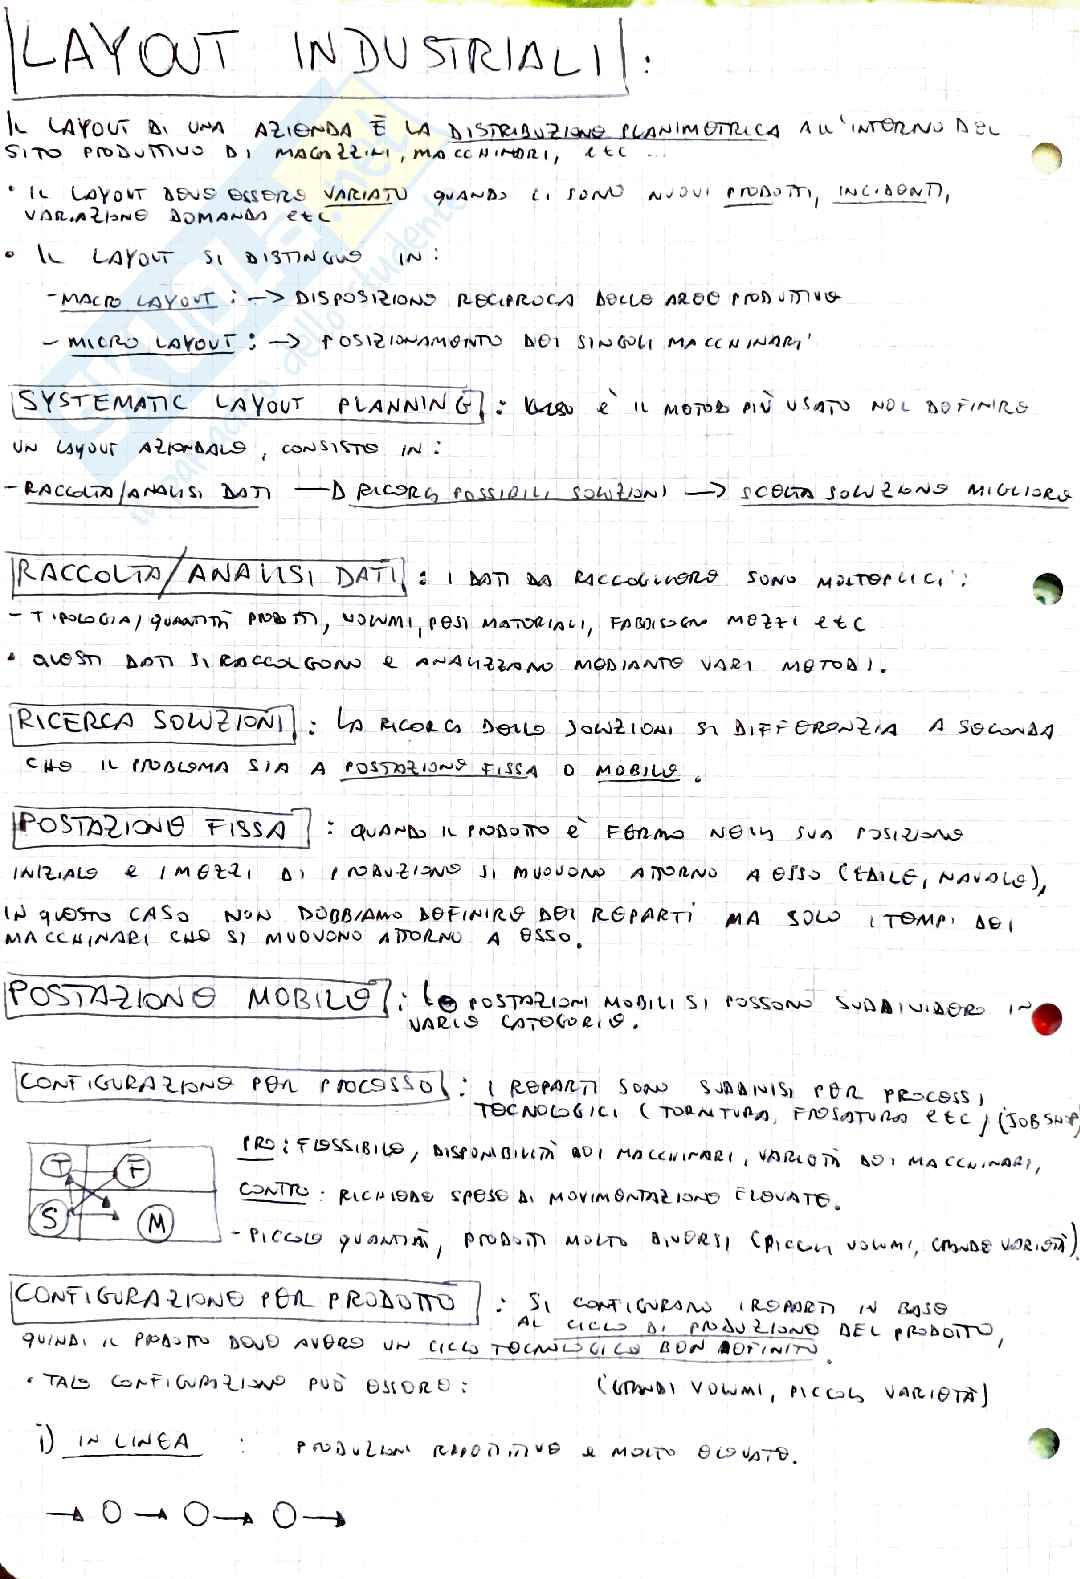 LAYOUT INDUSTRIALI :
IL LAYOUT DI UNA AZIENDA È LA DISTRIBUZIONE PLANIMETRICA ALL'INTERNO DEL
SITO PRODUTTIVO DI MAGAZZINI, MACCHINARI, etc ...
• IL LAYOUT DEVE ESSERE VARIATO QUANDO CI SONO NUOVI PRODOTTI, INCIDENTI,
VARIAZIONE DOMANDA etc
• IL LAYOUT SI DISTINGUE IN :
- MACRO LAYOUT : -> DISPOSIZIONE RECIPROCA DELLE AREE PRODUTTIVE
- MICRO LAYOUT : -> POSIZIONAMENTO DEI SINGOLI MACCHINARI
SYSTEMATIC LAYOUT PLANNING : È IL METODO PIÙ USATO NEL DEFINIRE
UN LAYOUT AZIENDALE, CONSISTE IN :
- RACCOLTA/ANALISI DATI -> RICERCA POSSIBILI SOLUZIONI -> SCELTA SOLUZIONE MIGLIORE
RACCOLTA/ANALISI DATI : I DATI DA RACCOGLIERE SONO MOLTEPLICI :
- TIPOLOGIA/QUANTITÀ PRODOTTI, VOLUMI, PESI MATERIALI, FABBISOGNI MEZZI etc
• QUESTI DATI SI RACCOLGONO E ANALIZZANO MEDIANTE VARI METODI.
RICERCA SOLUZIONI : LA RICERCA DELLE SOLUZIONI SI DIFFERENZIA A SECONDA
CHE IL PROBLEMA SIA A POSTAZIONE FISSA O MOBILE.
POSTAZIONE FISSA : QUANDO IL PRODOTTO È FERMO NELLA SUA POSIZIONE
INIZIALE E I MEZZI DI PRODUZIONE SI MUOVONO ATTORNO A ESSO (EDILE, NAVALE),
IN QUESTO CASO NON DOBBIAMO DEFINIRE DEI REPARTI MA SOLO I TEMPI DEI
MACCHINARI CHE SI MUOVONO ATTORNO A ESSO.
POSTAZIONE MOBILE : LE POSTAZIONI MOBILI SI POSSONO SUDDIVIDERE IN
VARIE CATEGORIE.
CONFIGURAZIONE PER PROCESSO : I REPARTI SONO SUDDIVISI PER PROCESSI
TECNOLOGICI (TORNITURA, FRESATURA etc) (JOB SHOP)
PRO : FLESSIBILE, DISPONIBILITÀ DEI MACCHINARI, VARIETÀ DEI MACCHINARI,
T F
CONTRO : RICHIEDE SPESE DI MOVIMENTAZIONE ELEVATE.
S M
- PICCOLE QUANTITÀ, PRODOTTI MOLTO DIVERSI (PICCOLI VOLUMI, GRANDE VARIETÀ).
CONFIGURAZIONE PER PRODOTTO : SI CONFIGURANO I REPARTI IN BASE
AL CICLO DI PRODUZIONE DEL PRODOTTO,
QUINDI IL PRODOTTO DEVE AVERE UN CICLO TECNOLOGICO BEN DEFINITO.
• TALE CONFIGURAZIONE PUÒ ESSERE : (GRANDI VOLUMI, PICCOLA VARIETÀ)
i) IN LINEA : PRODUZIONI RIPETITIVE E MOLTO ELEVATE.